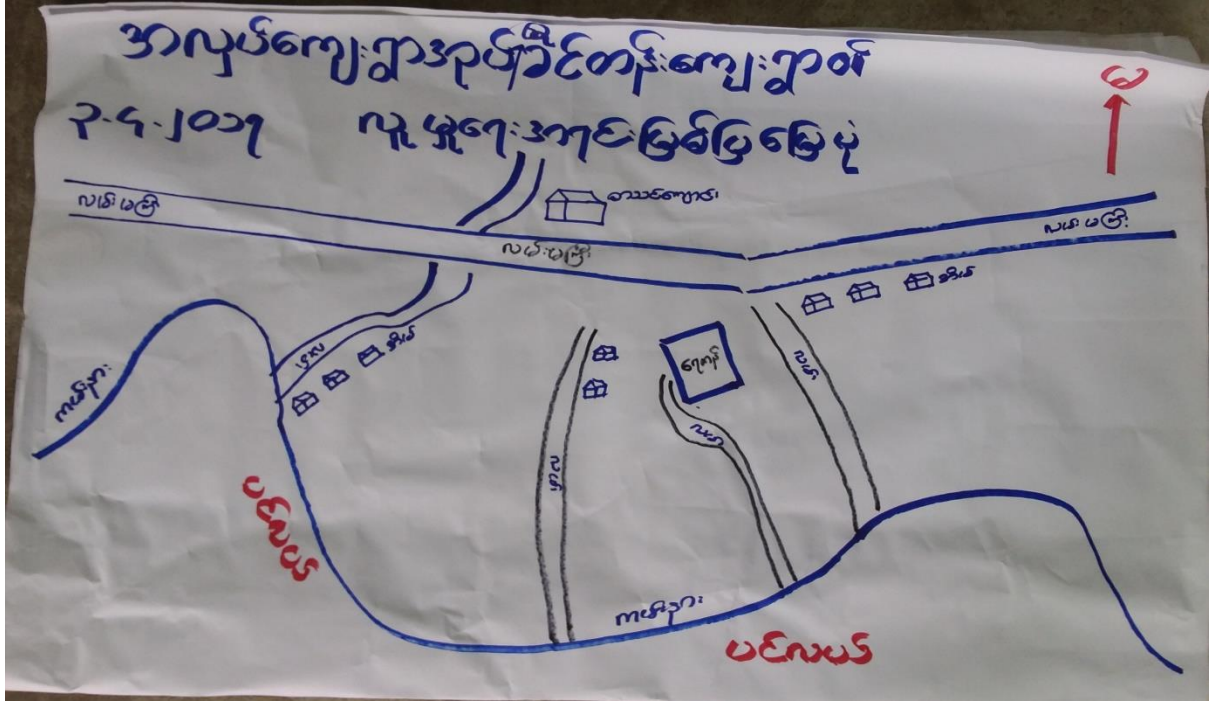 အလှပ်ကျေးရွာအုပ်စုခြင်တန်းကျေးရွာ၏
၃.၄.၂၀၁၇ လူမှုရေးအရင်းမြစ်ပြမြေပုံ
စာသင်ကျောင်း
လမ်းမကြီး
လမ်းမကြီး
လမ်းမကြီး
အိမ်
လမ်း
အိမ်
ရေကန်
လမ်း
ကမ်းနား
လမ်း
လမ်း
ပင်လယ်
ကမ်းနား
ပင်လယ်